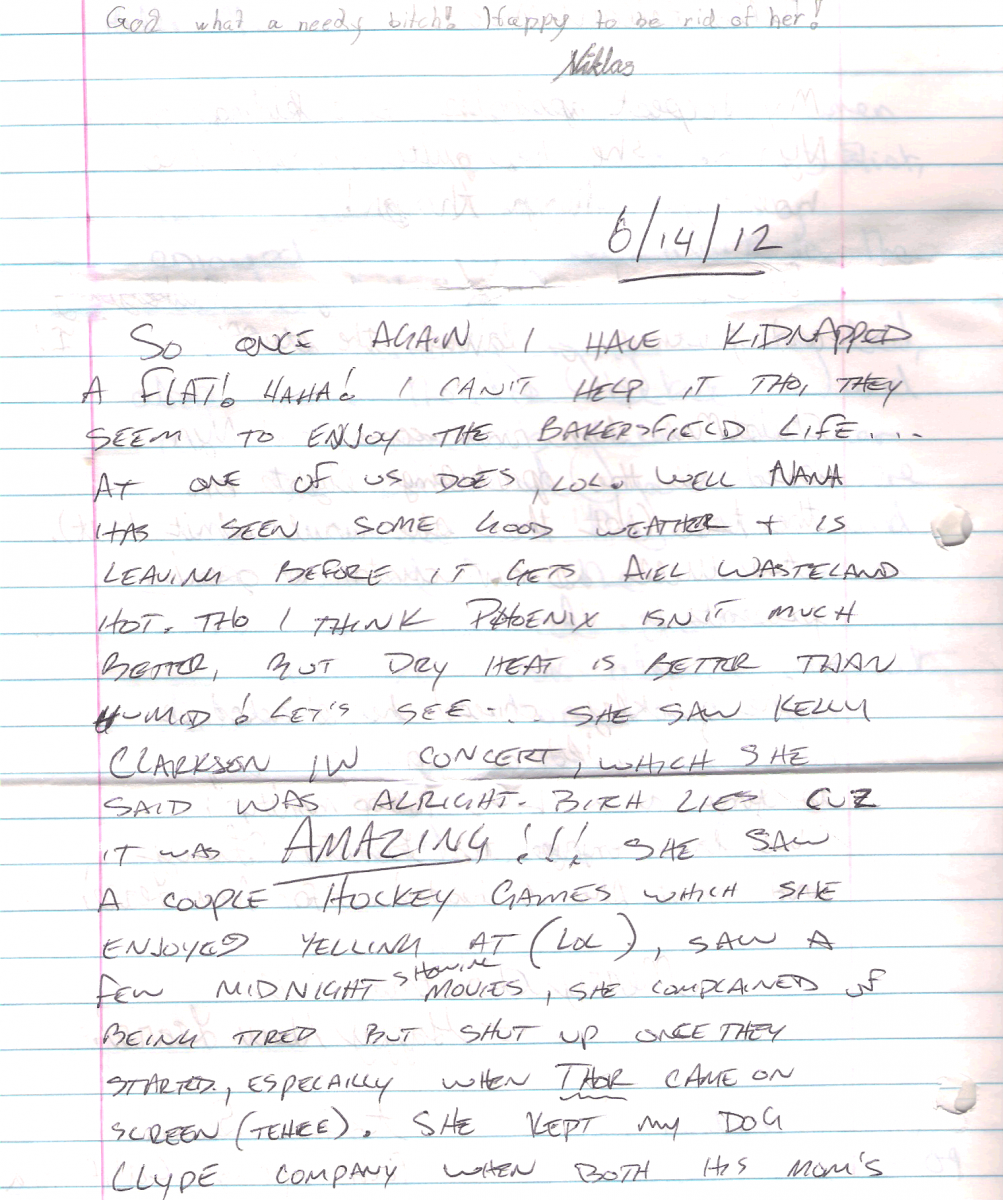 God what a needy bitch! Happy to be rid of her!
Niklas
6/14/12
SO ONCE AGAIN I HAVE KIDNAPPED
A FLAT! HAHA! I CAN'T HELP IT THO, THEY
SEEM TO ENJOY THE BAKERSFIELD LIFE...
AT ONE OF US DOES, LOL. WELL NANA
HAS SEEN SOME GOOD WEATHER + IS
LEAVING BEFORE IT GETS AIEL WASTELAND
HOT. THO I THINK PHOENIX ISN'T MUCH
BETTER, BUT DRY HEAT IS BETTER THAN
HUMID! LET'S SEE... SHE SAW KELLY
CLARKSON IN CONCERT, WHICH SHE
SAID WAS ALRIGHT. BITCH LIES CUZ
IT WAS AMAZING!!! SHE SAW
A COUPLE HOCKEY GAMES WHICH SHE
ENJOYED YELLING AT (LOL), SAW A
FEW MIDNIGHT SHOWING MOVIES, SHE COMPLAINED OF
BEING TIRED BUT SHUT UP ONCE THEY
STARTED, ESPECAILLY WHEN THOR CAME ON
SCREEN (TEHEE). SHE KEPT MY DOG
CLYPE COMPANY WHEN BOTH HIS MOM'S